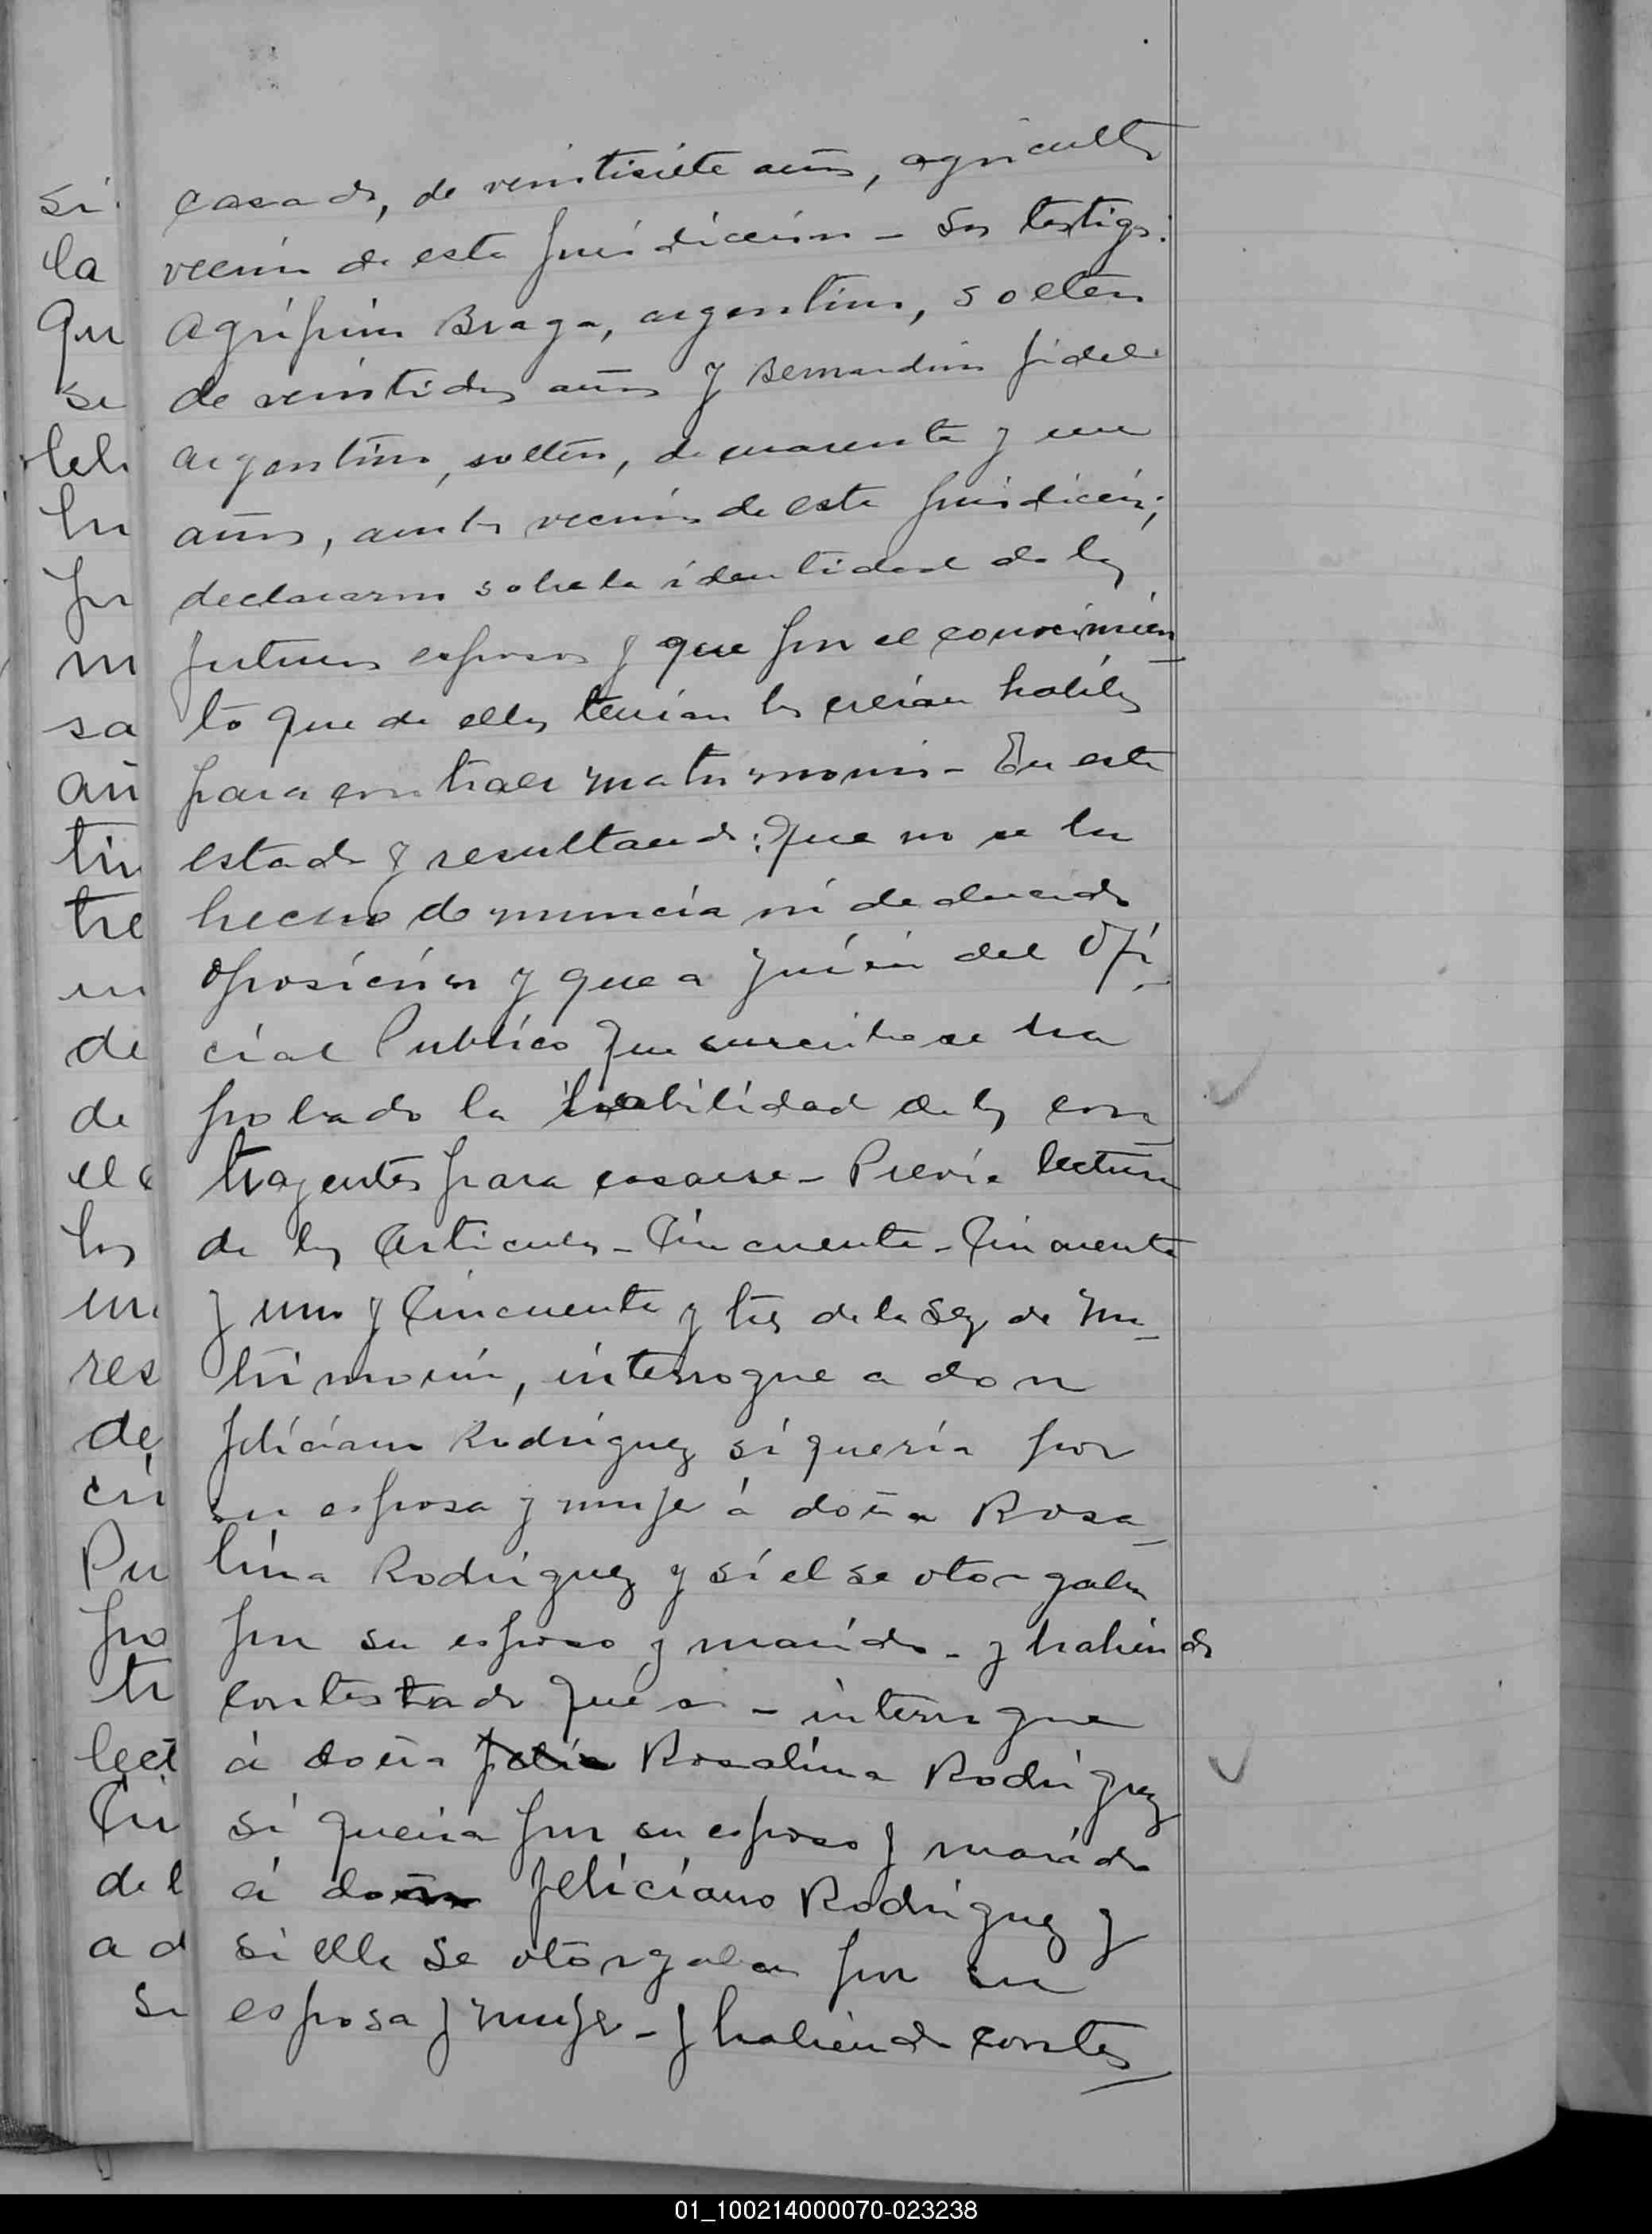 casado, de veintisiete años, agricultor
vecino de esta jurisdiccion - Los testigos:
Agripino Braga, argentino, soltero
de veintidos años y Bernardino Fidel
argentino, soltero, de cuarenta y un
años, ambos vecinos de esta jurisdiccion;
declararon sobre la identidad de los
futuros esposos y que por el conocimien
to que de ellos tenian los creian habiles
para contraer matrimonio - En este
estado y resultando: Que no se ha
hecho denuncia ni deducido
oposicion y que a juicio del Ofi-
cial Publico que suscribe se ha
probado la habilidad de los con
trayentes para casarse - Previa lectura
de los Articulos - Cincuenta - Cincuenta
y uno y Cincuenta y tres de la Ley de Ma-
trimonio, interrogue a don
Feliciano Rodriguez si queria por
su esposa y mujer á doña Rosa-
lina Rodriguez y si el se otorgaba
por su esposo y marido - y habiendo
contestado que si - interrogue
á doña Rosalina Rodriguez
si queria por su esposo y marido
á don Feliciano Rodriguez y
si ella se otorgaba por su
esposa y mujer - y habiendo contes
si
la
Qu
se
ha
por
m
sa
añ
tin
tre
un
de
de
el c
los
un
res
de
cin
Pu
pro
tr
lect
Cin
de l
a d
si
01_100214000070-023238